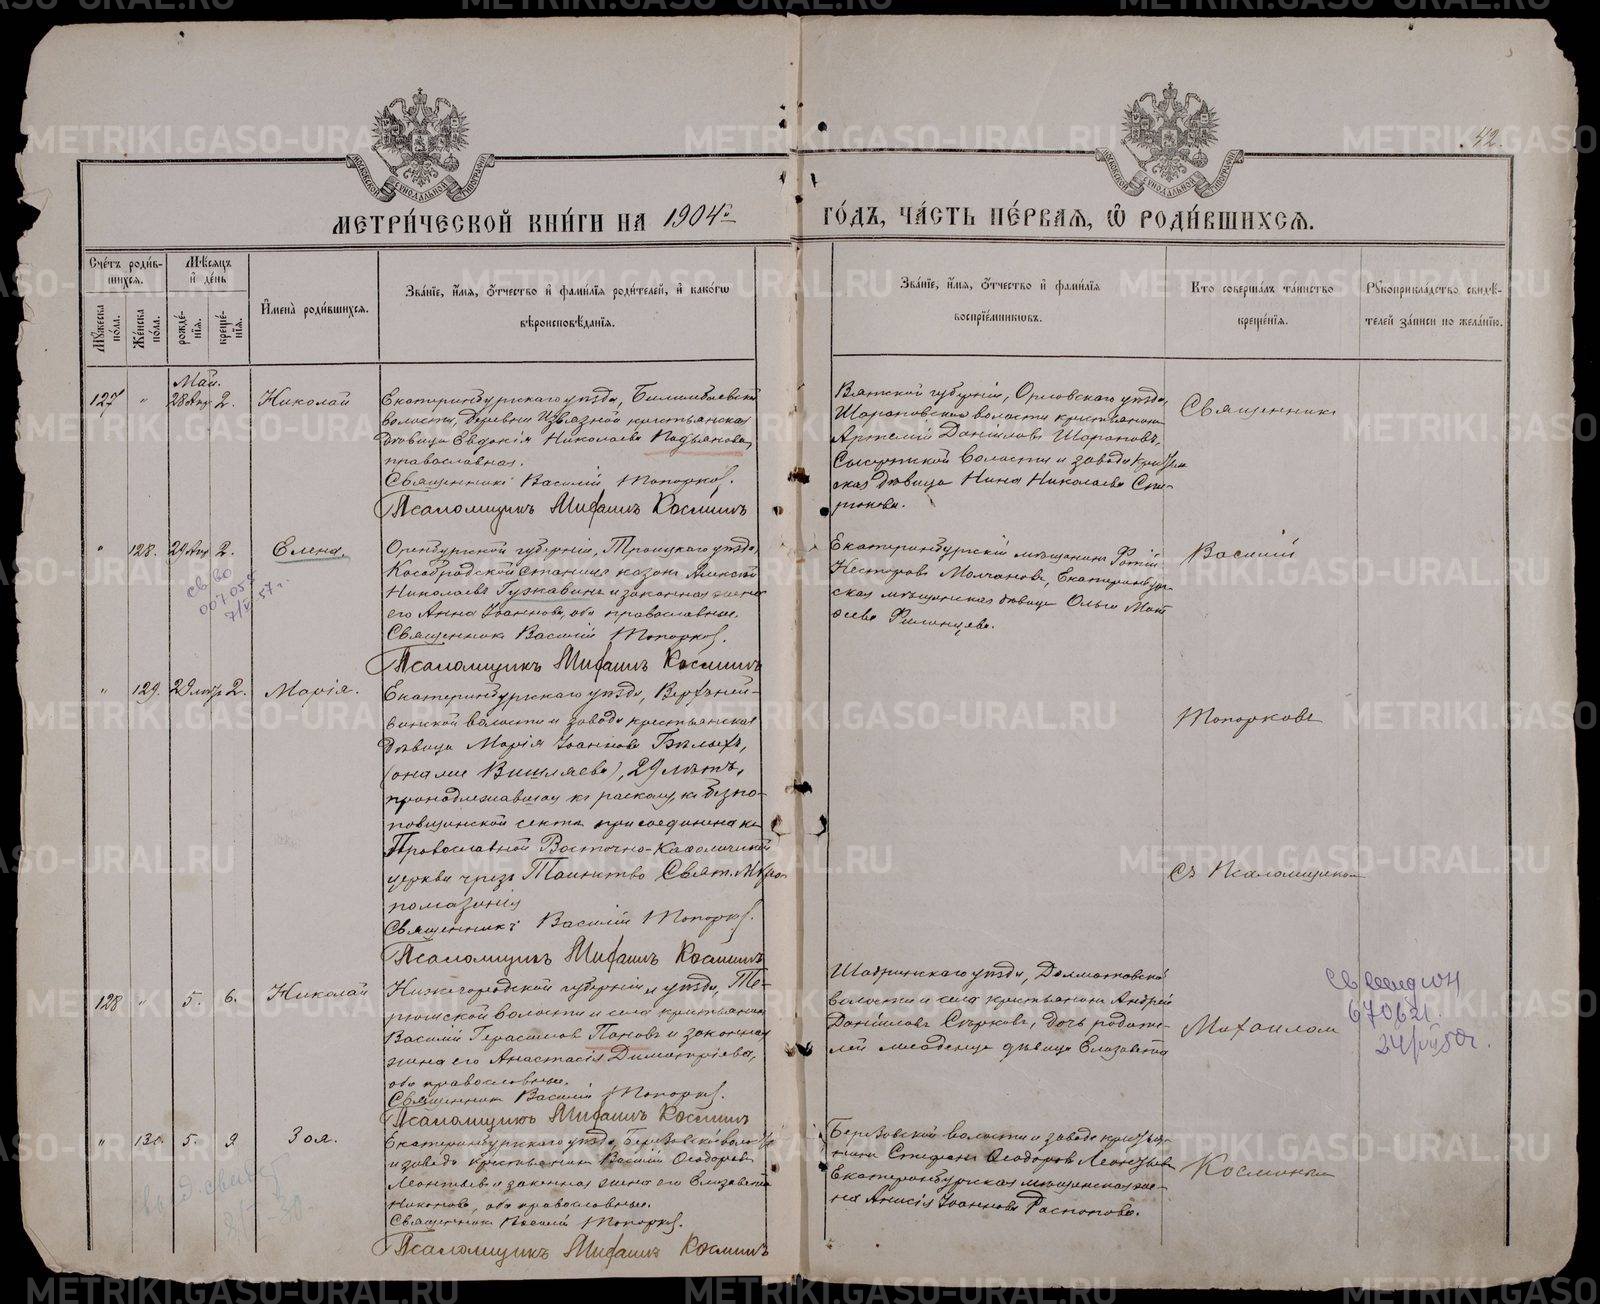 42.
МЕТРИ́ЧЕСКОЙ КНИ́ГИ НА 1904й
ГО́ДЪ, ЧА́СТЬ ПЕ́РВАЯ, Ѡ҆ РОДИ́ВШИХСЯ.
Сче́тъ роди́в-
шихся.
Мꙋ́жеска по́ла.
Же́нска по́ла.
Мѣ́сяцъ
и҆ де́нь
рожде́-
нїя.
креще́-
нїя.
И҆мена̀ роди́вшихся.
Зва́нїе, и҆́мя, ѻ҆́тчество и҆ фами́лїя роди́телей, и҆ како́гѡ
вѣроисповѣ́данїя.
Зва́нїе, и҆́мя, ѻ҆́тчество и҆ фами́лїя
воспрїе́мникѡвъ.
Кто̀ соверша́лъ та́инство
креще́нїя.
Рꙋкоприкла́дство свидѣ́-
телей за́писи по жела́нїю.
Май.
127 " 28 Апр 2. Николай
Екатеринбургскаго уѣзда, Билимбаевской
волости, деревни Извязной крестьянская
дѣвица Евдокія Николаева Подъянова,
православная.
Священникъ Василій Топорков.
Псаломщикъ Михаилъ Косминъ
Вятской губерніи, Орловскаго уѣзда,
Шарановской волости крестьянинъ
Артемій Даніиловъ Шарановъ,
Сысертской волости и завода крестьян
ская дѣвица Нина Николаева
Священникъ
" 128. 29 Апр 2. Елена.
св-во
7/V 57 г.
Оренбургской губерніи, Троицкаго уѣзда,
Кособродской станицы казакъ Алексѣй
Николаевъ Гужавинъ и законная жена
его Анна Іоаннова, оба православные.
Священникъ Василій Топорков.
Псаломщикъ Михаилъ Косминъ
Екатеринбургскій мѣщанинъ Фотій
Несторовъ Молчановъ, Екатеринбург-
ская мѣщанская дѣвица Ольга Мат
ѳеева Филинцева.
Василій
" 129. 29 Апр 2. Марія.
Екатеринбургскаго уѣзда, Верхней-
винской волости и завода крестьянская
дѣвица Марія Іоаннова Бѣлыхъ,
(она же Вишляева), 29 лѣтъ,
принадлежавшая къ расколу, къ безпо-
повщинской сектѣ присоединена къ
Православной Восточно-Каѳолической
церкви чрезъ Таинство Свят. Мѵро-
помазанія
Священникъ Василій Топорков.
Псаломщикъ Михаилъ Косминъ
Топорковъ
Съ Псаломщикомъ
128 " 5. 6. Николай
Нижегородской губерніи и уѣзда, Те-
рюшской волости и села крестьянинъ
Василій Герасимовъ Пановъ и законная
жена его Анастасія Димитріева,
оба православные.
Священникъ Василій Топорков.
Псаломщикъ Михаилъ Косминъ
Шадринскаго уѣзда, Долматовской
волости и села крестьянинъ Андрей
Даніиловъ Сѣрковъ, дочь родите-
лей младенца дѣвица Елизавета
Михаиломъ
670621.
24/VII 50 г.
" 130. 5. 9 Зоя.
Екатеринбургскаго уѣзда, Березовской волости
и завода крестьянинъ Василій Ѳеодоровъ
Леонтьевъ и законная жена его Елизавета
Никонова, оба православные.
Священникъ Василій Топорков.
Псаломщикъ Михаилъ Косминъ
Березовской волости и завода крестья-
нинъ Стефанъ Ѳеодоровъ Леонтьевъ
Екатеринбургская мѣщанская же-
на Анисія Іоаннова Распопова.
Косминымъ
METRIKI.GASO-URAL.RU